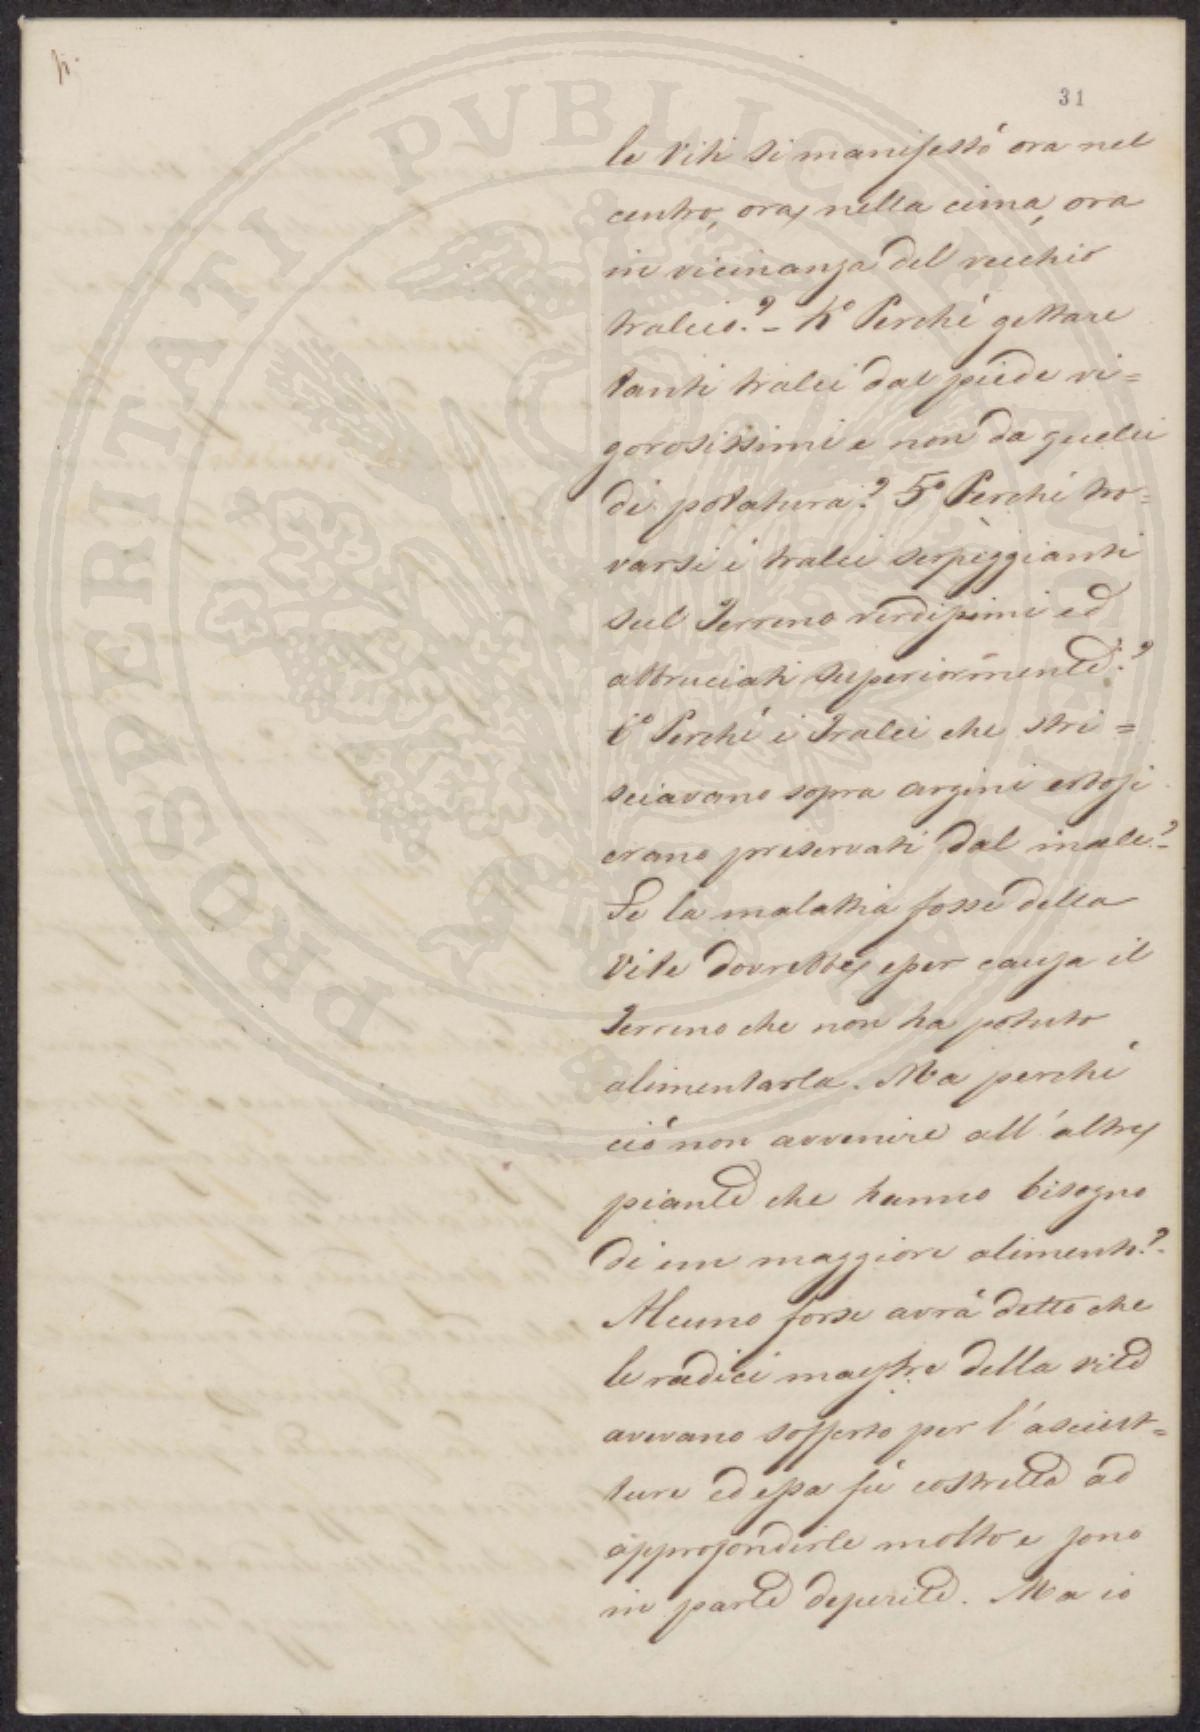 31
le Viti si manifestò ora nel
centro, ora nella cima, ora
in vicinanza del vecchio
tralcio? - 4° Perché gettare
tanti tralci dal piede vi=
gorosissimi e non da quelli
di potatura? 5° Perché tro=
varsi i tralci serpeggianti
sul Terreno verdissimi ed
abbruciati superiormente?
6° Perché i Tralci che stri=
sciavano sopra argini erbosi
erano preservati dal male? -
Se la malattia fosse della
Vite dovrebbe esser causa il
Terreno che non ha potuto
alimentarla. Ma perché
ciò non avvenire all'altre
piante che hanno bisogno
di un maggiore alimento? -
Alcuno forse avrà detto che
le radici maestre della vite
avevano sofferto per l'asciut=
ture ed essa fù costretta ad
approfondirle molto e sono
in parte deperite. Ma io
PROSPERITATI PUBLICAE AUGENDAE